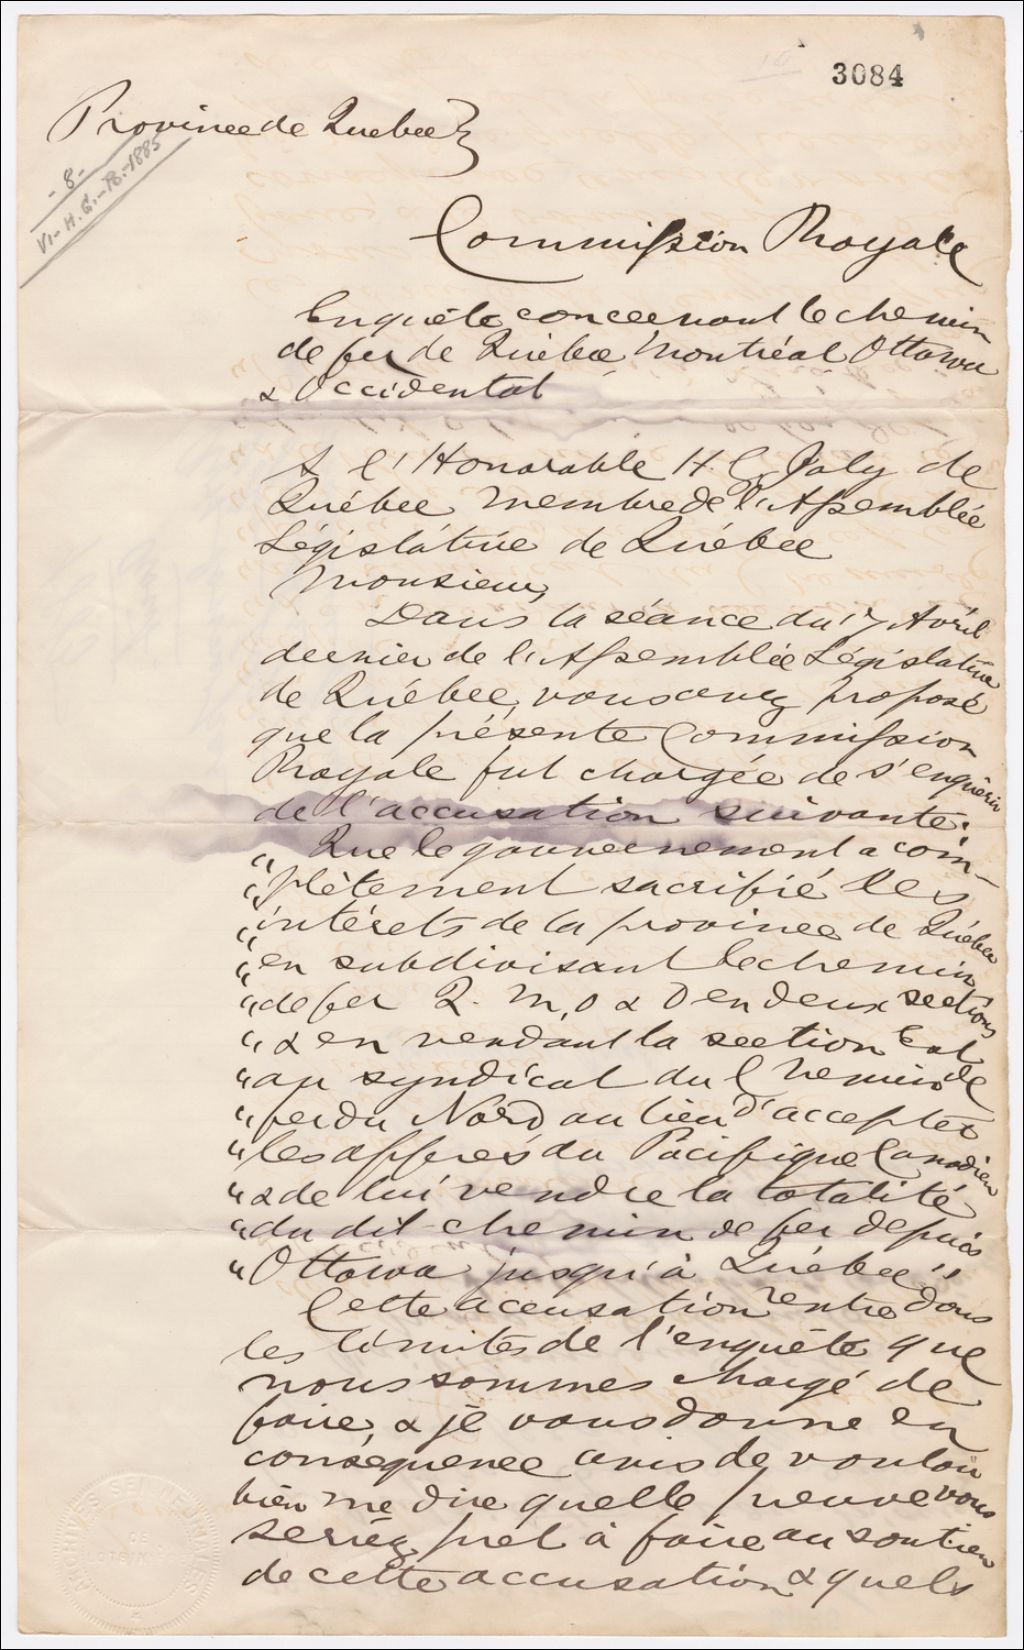 3084
Province de Quebec }
- 8 -
VI - H. G. - B. - 1885
Commission Royale
Enquête concernant le chemin
de fer de Québec Montréal Ottawa
& Occidental
A l'Honorable H. G. Joly de
Québec membre de l'Assemblée
Législative de Québec
Monsieur,
Dans la séance du 17 Avril
dernier de l'Assemblée Législative
de Québec, vous avez proposé
que la présente Commission
Royale fut chargée de s'enquérir
de l'accusation suivante:
" Que le gouvernement a com-
" plètement sacrifié les
" intérêts de la province de Québec
" en subdivisant le chemin
" de fer Q. M, O & O en deux sections
" & en vendant la section Est
" au syndicat du Chemin de
" fer du Nord au lieu d'accepter
" les offres du Pacifique Canadien
" & de lui vendre la totalité
" du dit chemin de fer depuis
" Ottawa jusqu'à Québec"
Cette accusation rentre dans
les limites de l'enquête que
nous sommes chargé de
faire, & je vous donne en
conséquence avis de vouloir
bien me dire quelle preuve vous
seriez prêt à faire au soutien
de cette accusation & quels
ARCHIVES SEIGNEURIALES
DE
LOTBINIÈRE